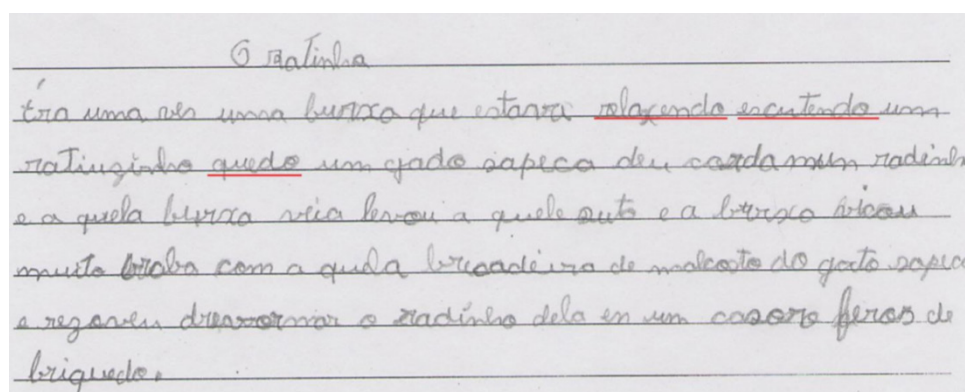 O Ratinho
Éra uma ves uma burxa que estava relaxendo escutendo um
ratiuzinho quedo um gado sapeca deu cardamum radinh
e a quela burxa veia levou a quele suto e a burxo vicou
muito braba com a quela bricadeira de malcosto do gato sapeca
e rezoveu dreavormar o radinho dela en um casoro feros de
briquedo.